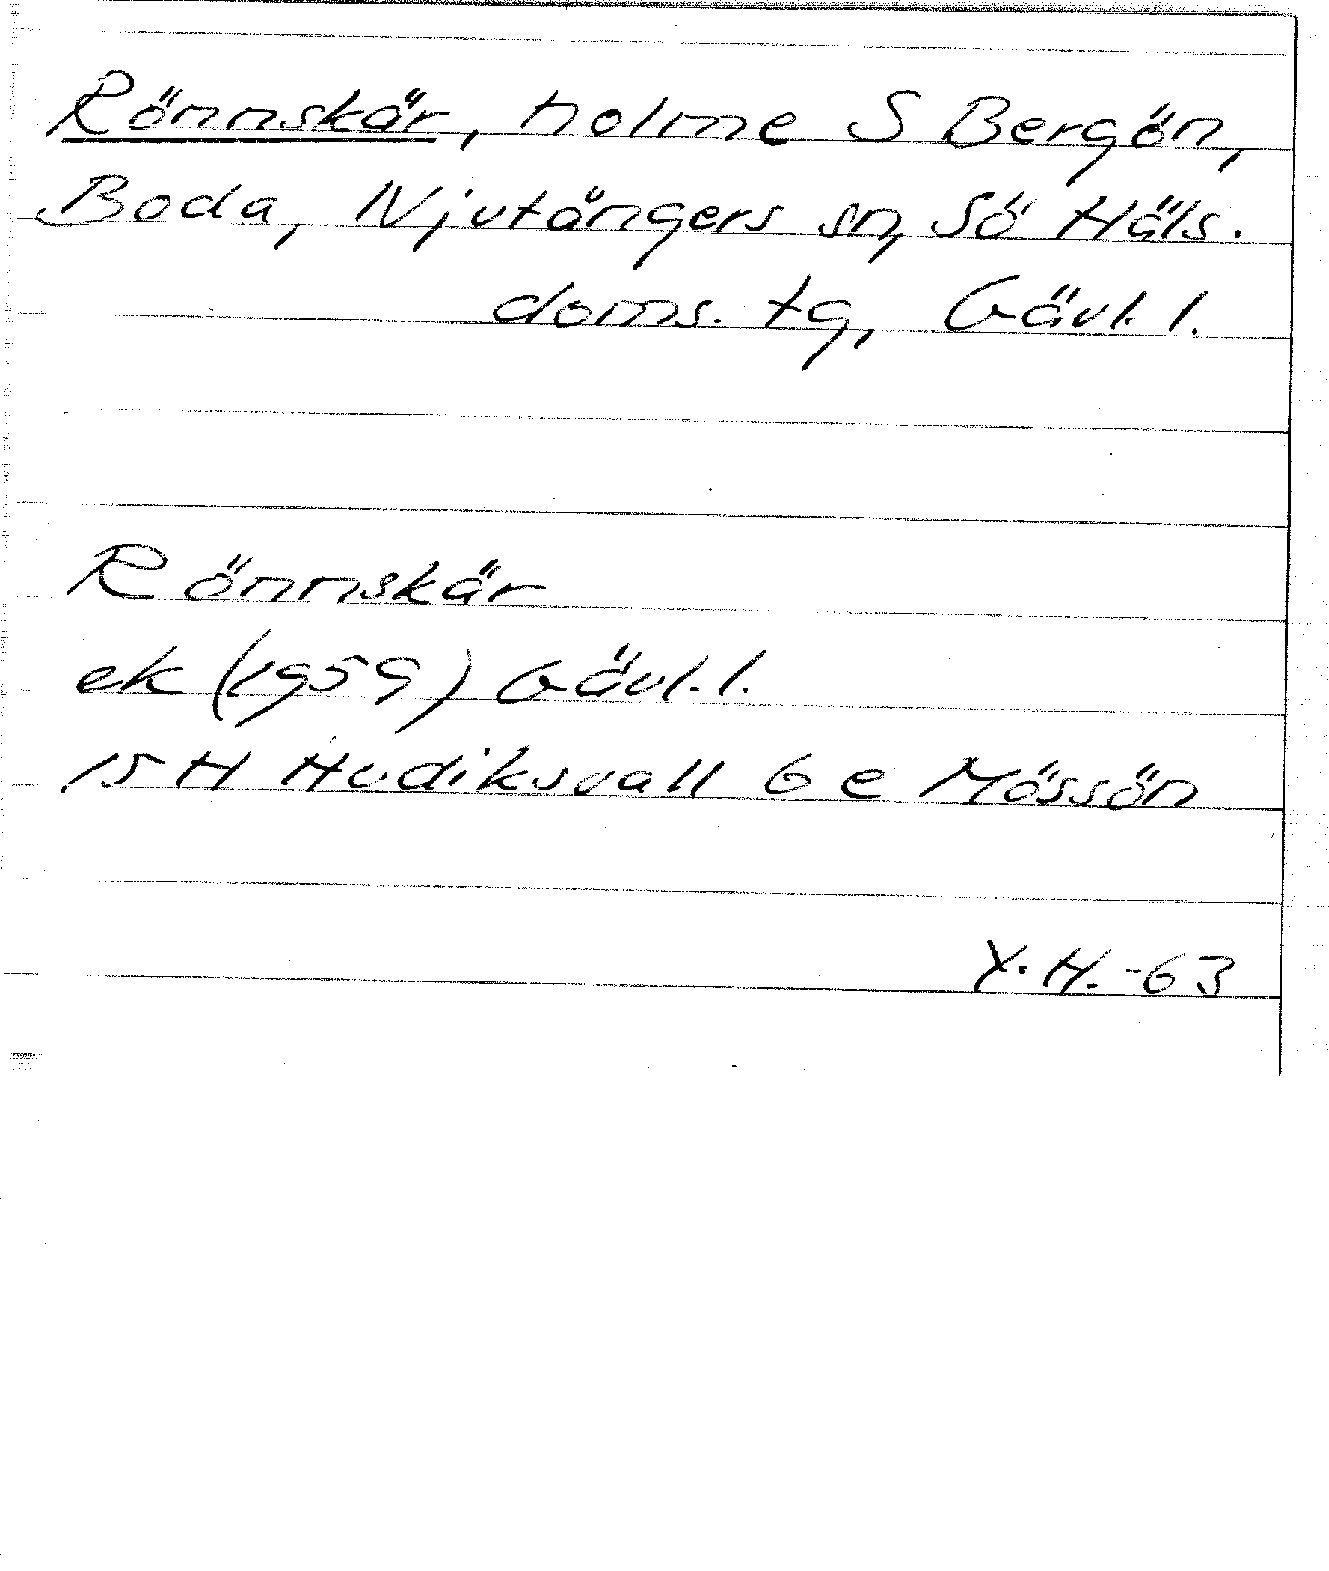 Rönnskär, holme S Bergön,
Boda, Njutångers sn, Sö Häls.
doms. tg, Gävl. l.
Rönnskär
ek (1959) Gävl. l.
15 H Hudiksvall 6 e Mössön
Y. H. -63